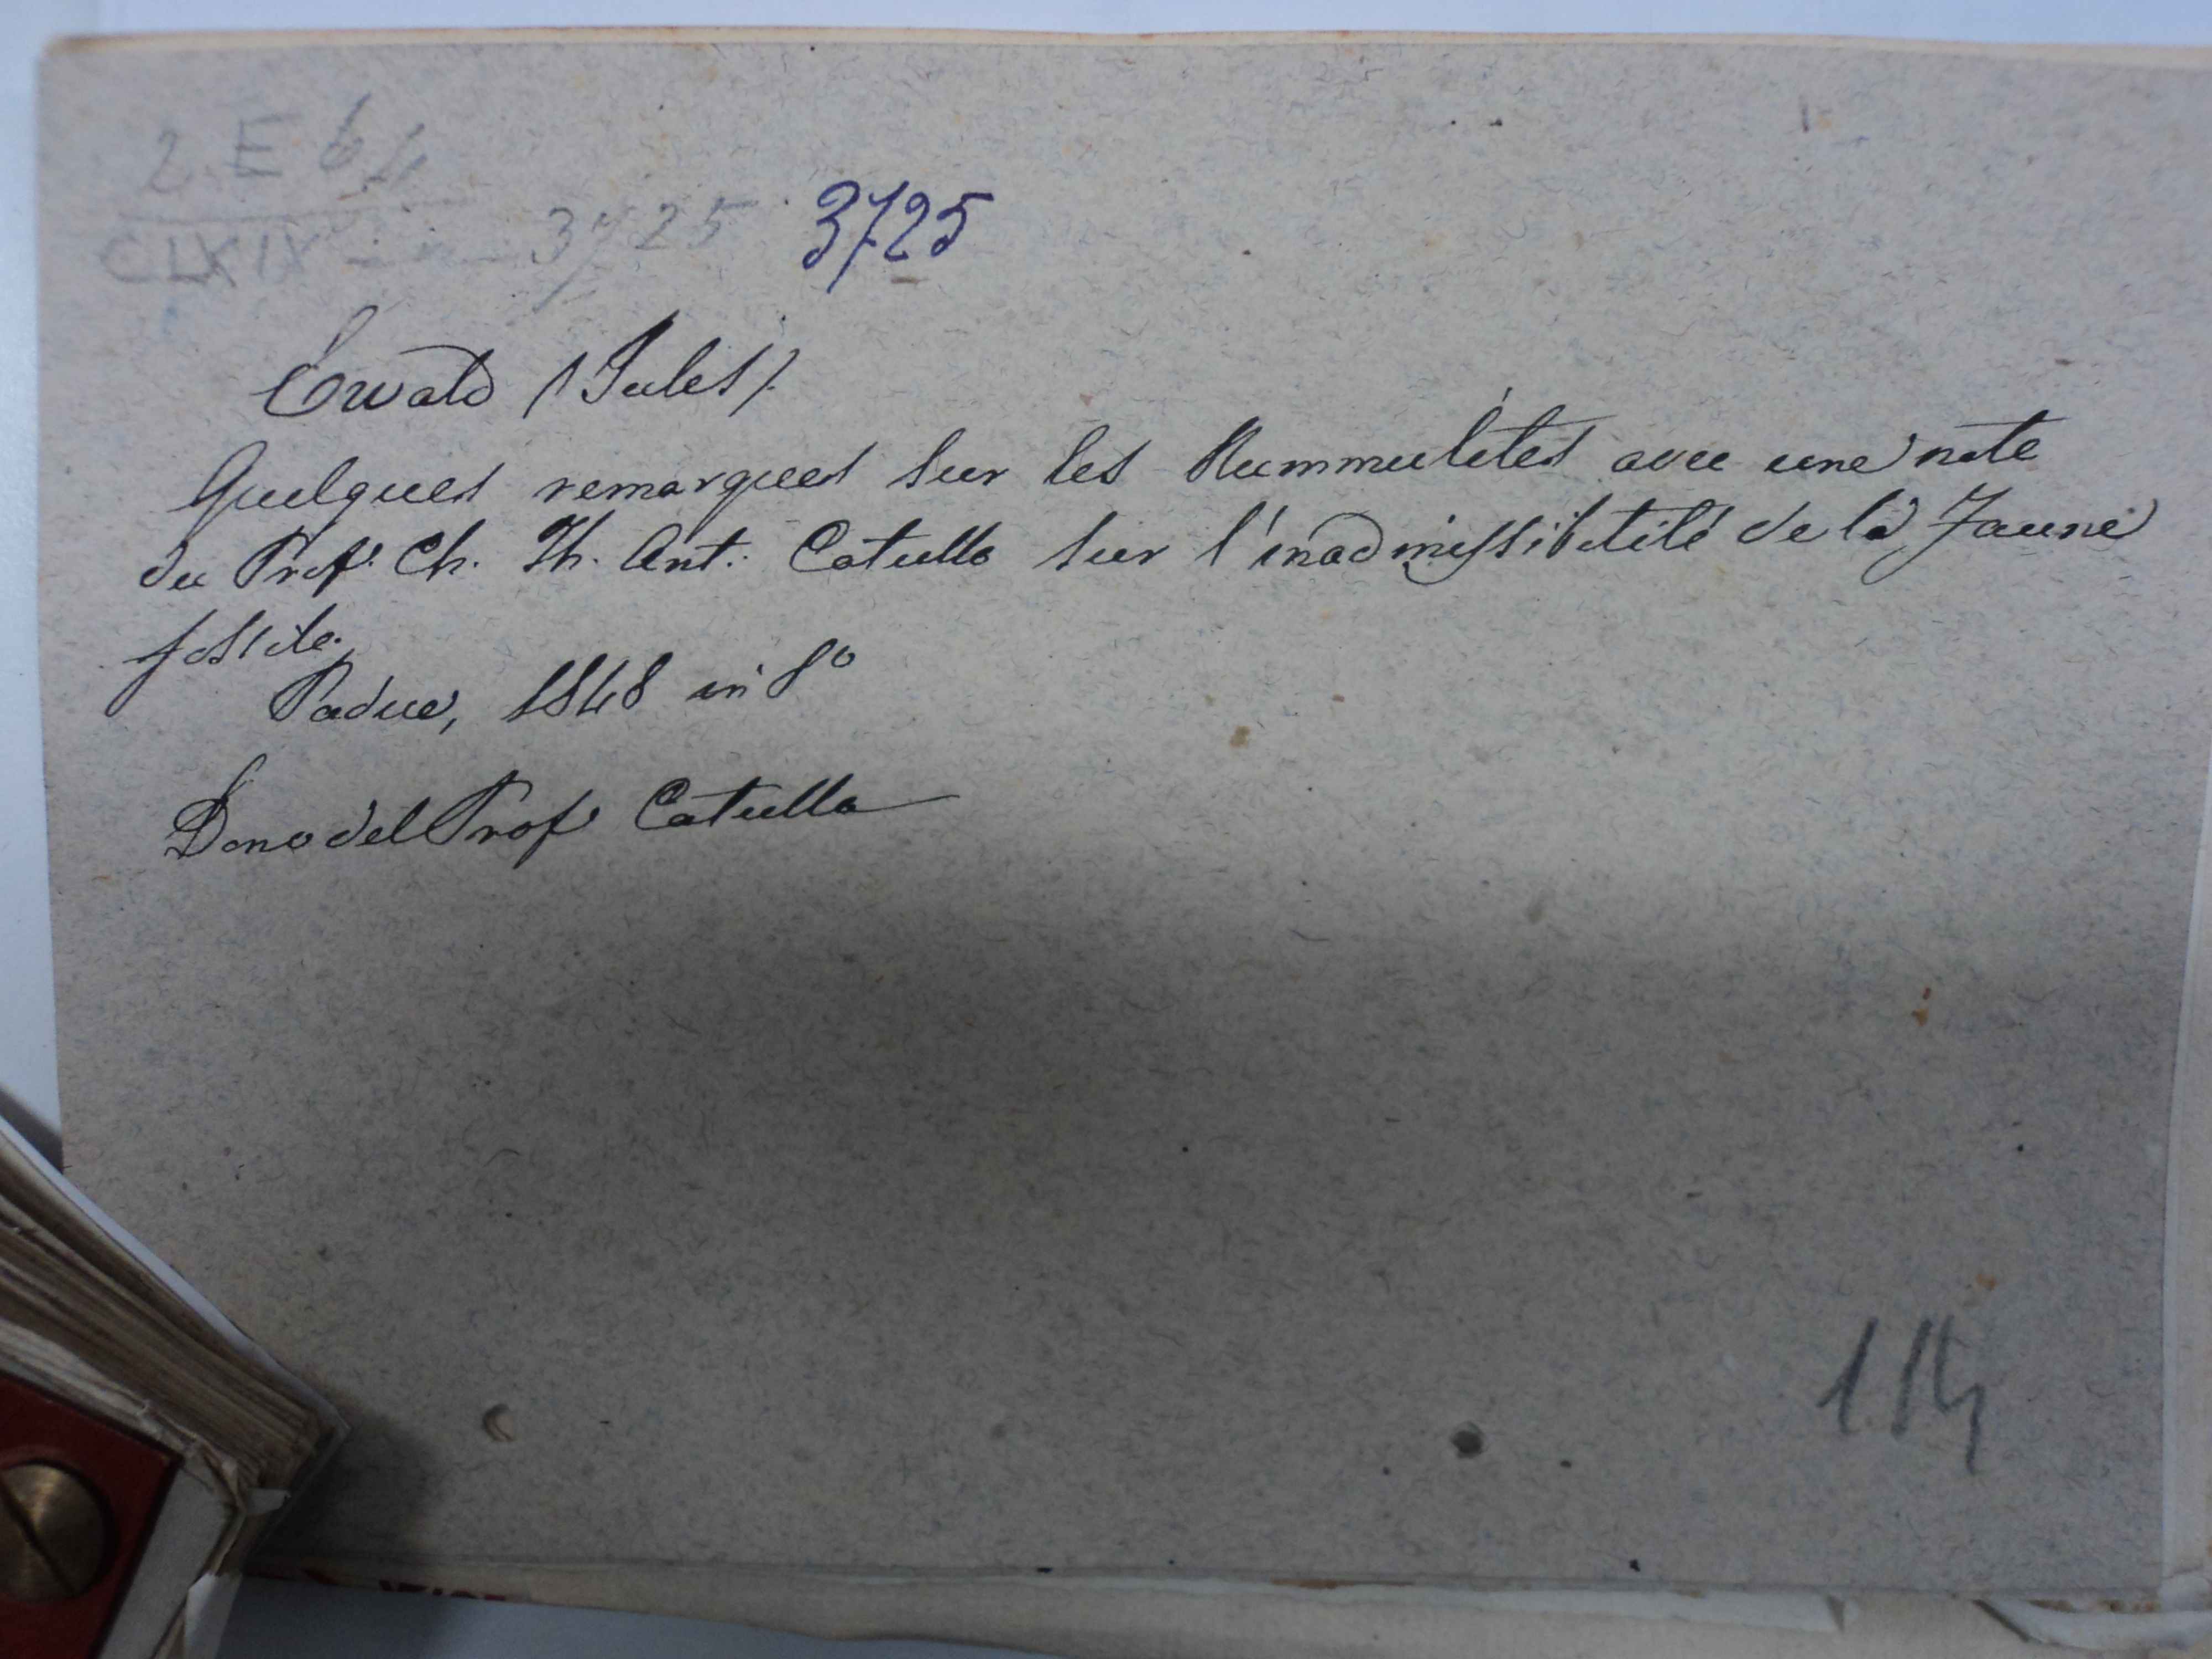 2. E 64
CLXIX - n - 3725 3725
Ewald (Jules).
Quelques remarques sur les Nummulites avec une note
du Prof. Ch. Th. Ant. Catullo sur l'inadmissibilité de la Faune
fossile.
Padue, 1848 in 8°
Dono del Prof Catullo